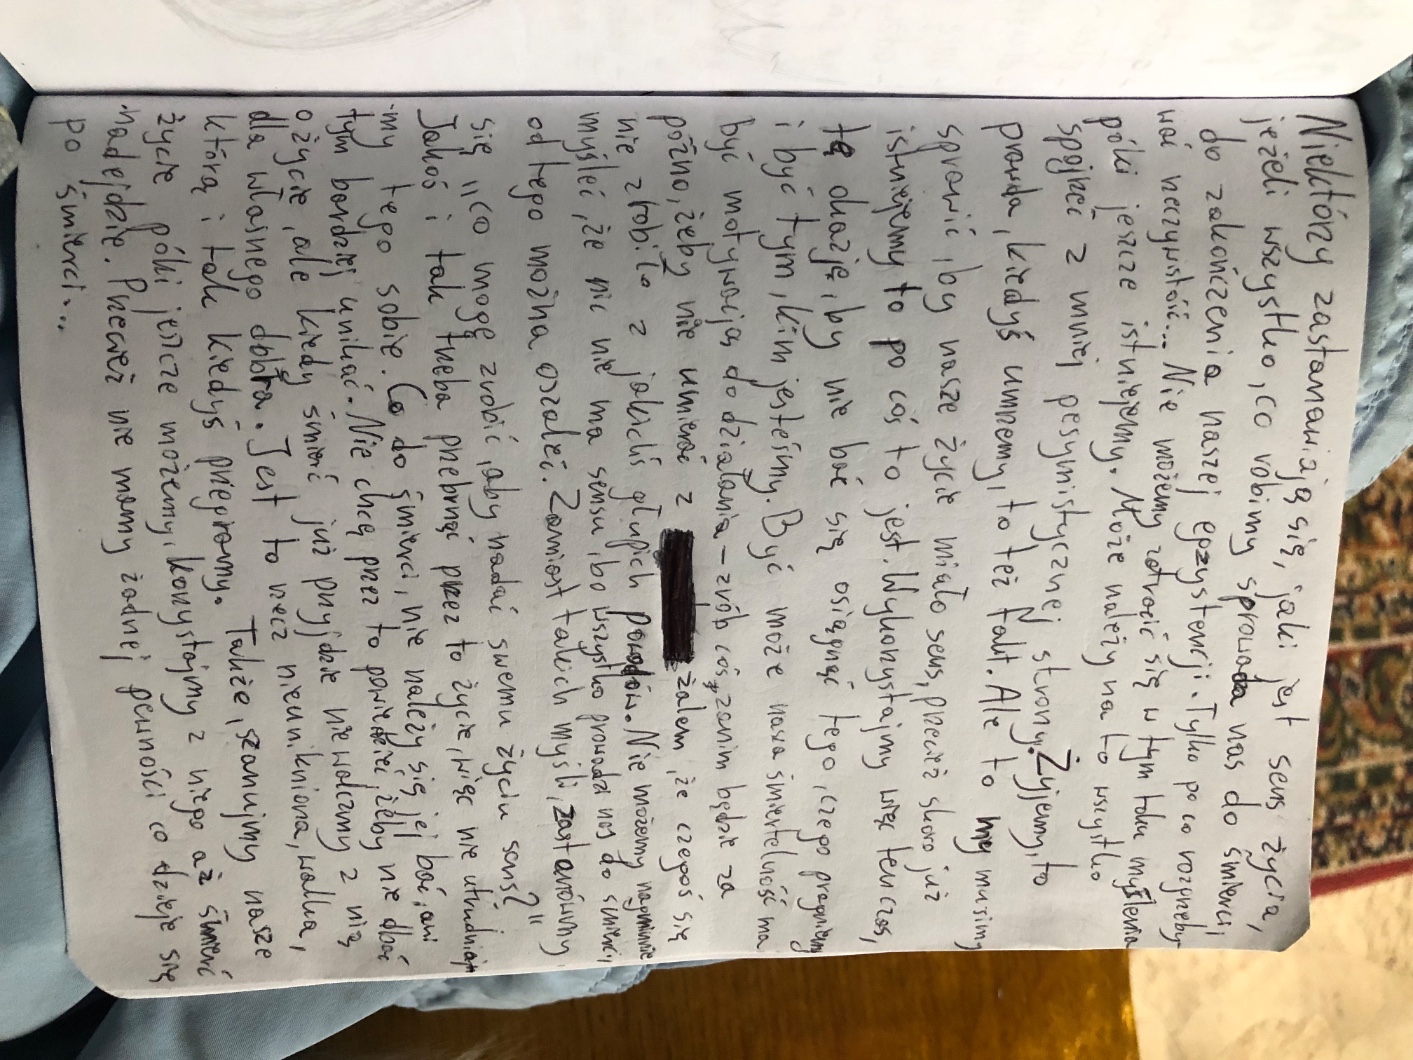 Niektórzy zastanawiają się, jaki jest sens życia,
jeżeli wszystko, co robimy sprowadza nas do śmierci,
do zakończenia naszej egzystencji. Tylko po co rozgrzeby-
wać rzeczywistość... Nie możemy zatracić się w tym toku myślenia
póki jeszcze istniejemy. Może należy na to wszystko
spojrzeć z mniej pesymistycznej strony? Żyjemy, to
prawda, kiedyś umrzemy, to też fakt. Ale to my musimy
sprawić, by nasze życie miało sens, przecież skoro już
istniejemy to po coś to jest. Wykorzystajmy więc ten czas,
tę okazję, by nie bać się osiągnąć tego, czego pragniemy
i być tym, kim jesteśmy. Być może nasza śmiertelność ma
być motywacją do działania – zrób coś, zanim będzie za
późno, żeby nie umierać z żalem, że czegoś się
nie zrobiło z jakichś głupich powodów. Nie możemy nagminnie
myśleć, że nic nie ma sensu, bo wszystko prowadzi nas do śmierci,
od tego można oszaleć. Zamiast takich myśli, zastanówmy
się "co mogę zrobić, aby nadać swemu życiu sens?"
Jakoś i tak trzeba przebrnąć przez to życie, więc nie utrudniaj-
my tego sobie. Co do śmierci, nie należy się jej bać, ani
tym bardziej unikać. Nie chcę przez to powiedzieć, żeby nie dbać
o życie, ale kiedy śmierć już przyjdzie nie walczmy z nią
dla własnego dobra. Jest to rzecz nieunikniona, walka,
którą i tak kiedyś przegramy. Także, szanujmy nasze
życie póki jeszcze możemy, korzystajmy z niego aż śmierć
nadejdzie. Przecież nie mamy żadnej pewności co dzieje się
po śmierci...